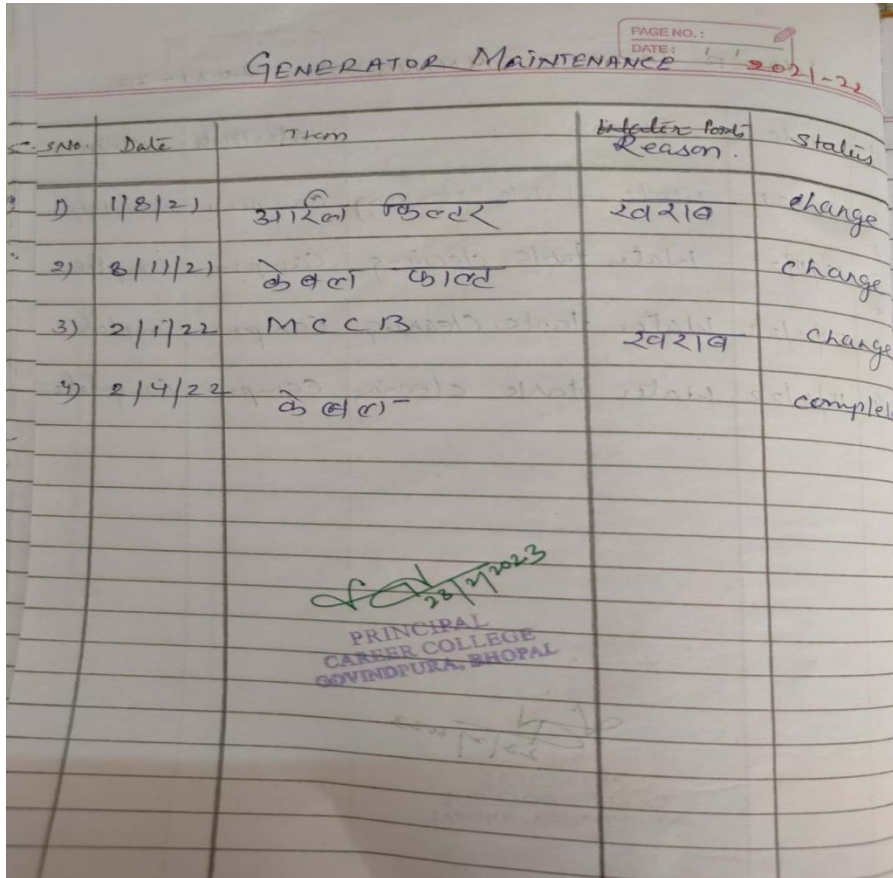 PAGE NO.:
DATE:
GENERATOR MAINTENANCE 2021-22
SNo. Date Item Reason. Status
1) 1/8/21 आईल फिल्टर खराब change
2) 8/11/21 केबल फाल्ट change
3) 2/1/22 MCCB खराब change
4) 2/4/22 केबल complet
28/2/2023
PRINCIPAL
CAREER COLLEGE
GOVINDPURA, BHOPAL